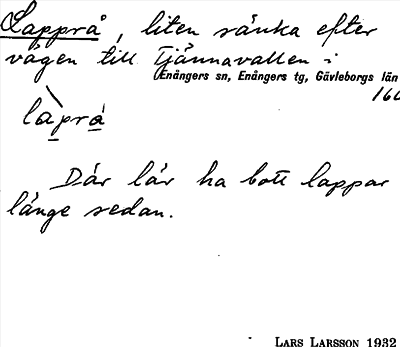 Lapprå, liten sänka efter
vägen till Tjännavallen i
Enångers sn, Enångers tg, Gävleborgs län
160
làprá
Där lär ha bott lappar
länge sedan.
LARS LARSSON 1932